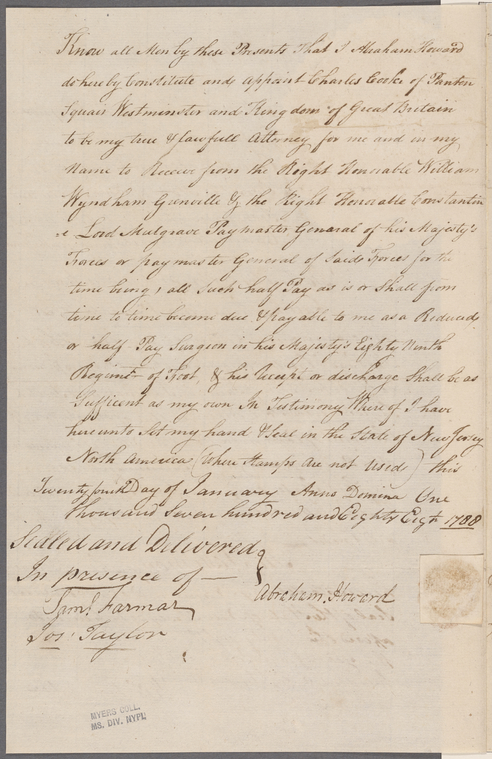 Know all Men by these Presents That I Abraham Howard
do hereby Constitute and Appoint Charles Cooke of Panton
Square Westminster and Kingdom of Great Britain
to be my true & lawfull Attorney for me and in my
Name to Receive from the Right Honourable William
Wyndham Grenville & the Right Honorable Constantin
e Lord Mulgrave Paymaster General of his Majesty's
Forces or paymaster General of said Forces for the
time being, all such half Pay as is or shall from
time to time become due & payable to me as a Reduced
or half Pay Surgeon in his Majesty's Eighty Ninth
Regimt of Foot, & his Receipt or discharge shall be as
Sufficent as my own In Testimony Where of I have
hereunto Set my hand & Seal in the State of New Jersey
North America (where Stamps are not used) this
Day of January Anno Domina One
thousand Seven hundred and Eighty Eigh 1788
Sealed and Delivered
In presence of —
Abraham Howard
Saml Farmar
Jos. Taylor
MYERS COLL.
MS. DIV. NYPL